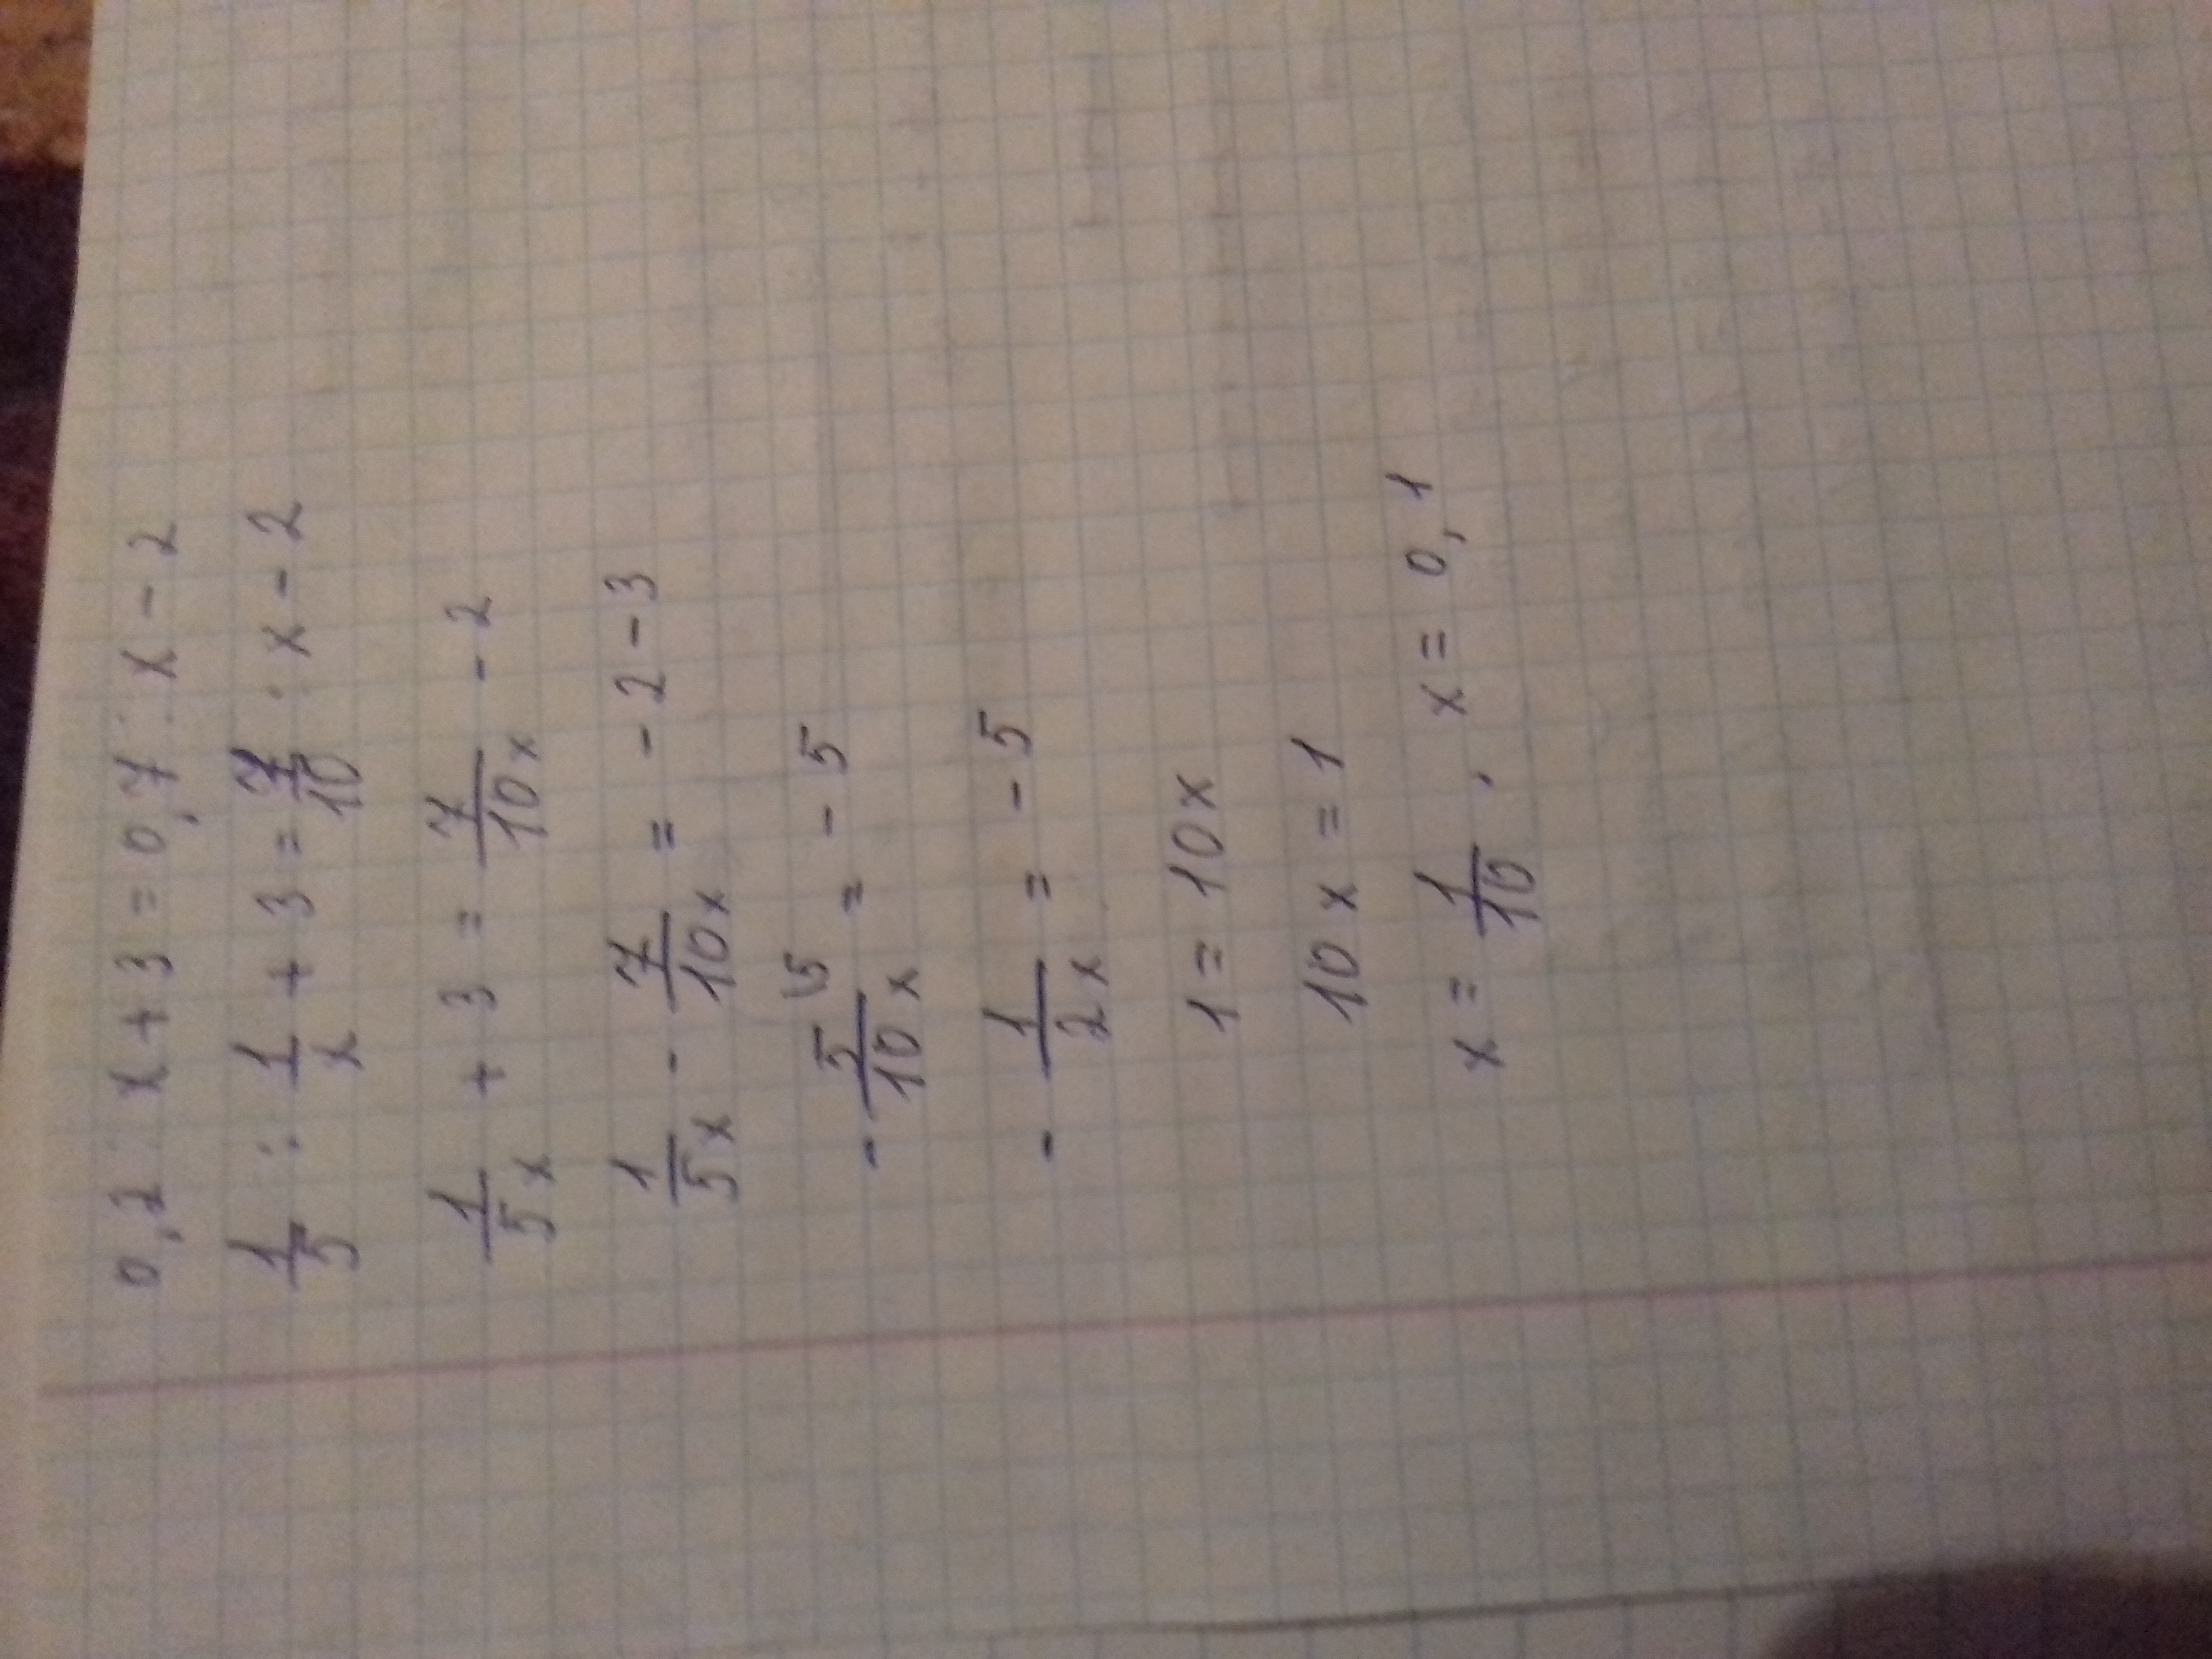 0,2 : x + 3 = 0,7 : x - 2
1/5 : 1/x + 3 = 7/10 : x - 2
1/5x + 3 = 7/10x - 2
1/5x - 7/10x = - 2 - 3
- 5/10x \5 = - 5
- 1/2x = - 5
1 = 10x
10x = 1
x = 1/10, x = 0,1